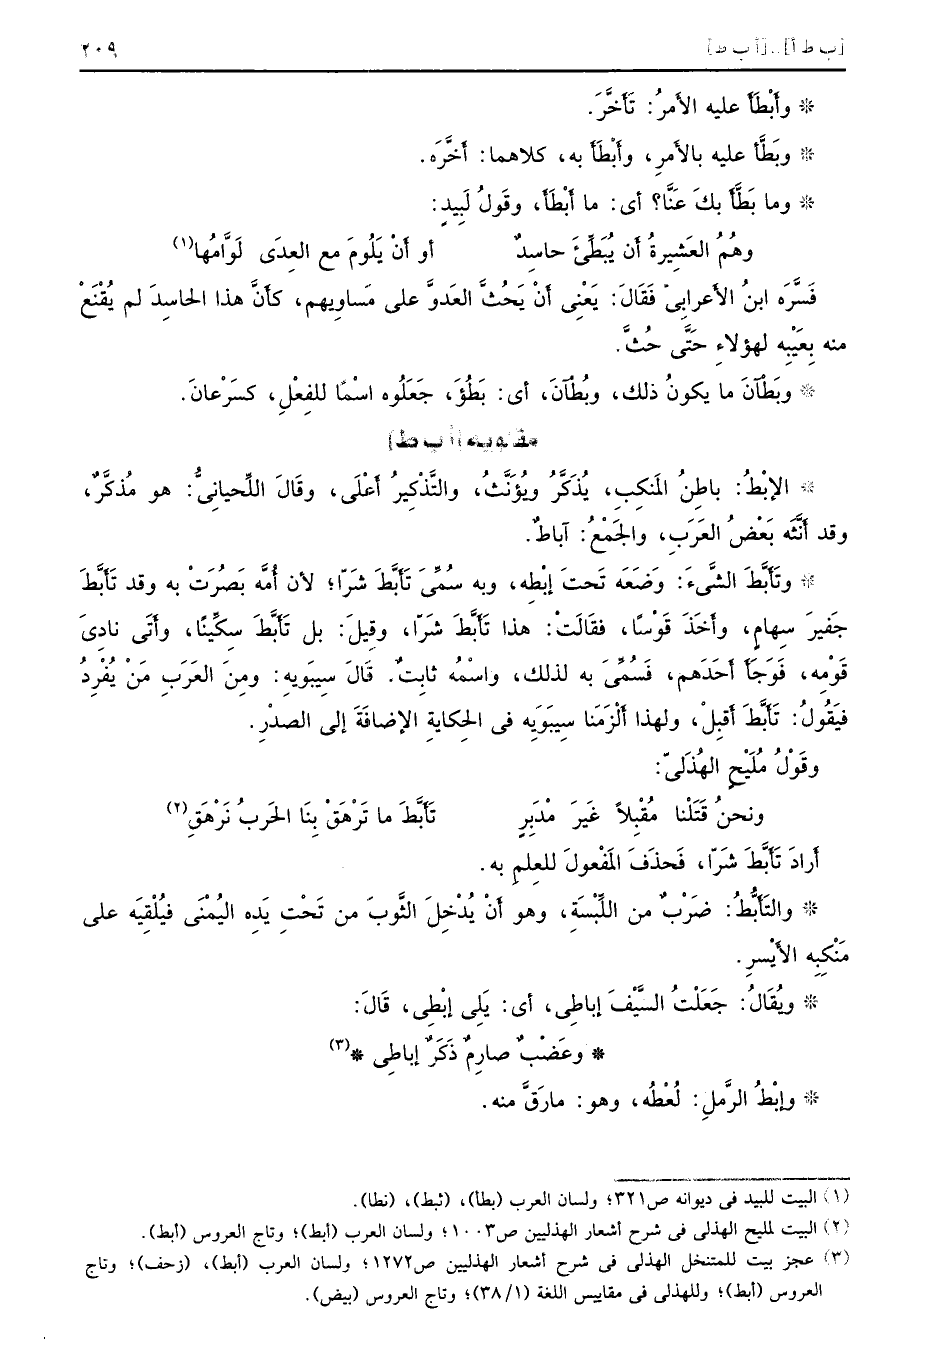 [ب ط أ]...[أ ب ط] ٢٠٩
* وأَبْطَأَ عليه الأمرُ: تَأَخَّرَ.
* وبَطَّأ عليه بالأمرِ، وأَبْطَأ به، كلاهما: أخَّرَه.
* وما بَطَّأ بكَ عَنَّا؟ أى: ما أبْطَأ، وقَولُ لَبِيدٍ:
وهُمُ العَشِيرةُ أن يُبَطِّئَ حاسدٌ أو أنْ يَلُومَ مع العِدَى لَوَّامُها(١)
فَسَّرَه ابنُ الأعرابِىِّ فَقَالَ: يَعْنِى أنْ يَحُثَّ العَدوَّ على مَساوِيهم، كأنَّ هذا الحاسدَ لم يُقْنَعْ
منه بِعَيْبِه لهؤلاءِ حتَّى حُثَّ.
* وبَطْآنَ ما يكونُ ذلك، وبُطْآنَ، أى: بَطُؤَ، جَعَلُوه اسْمًا للفِعْلِ، كسَرْعانَ.
مقلوبه [أ ب ط]
* الإبْطُ: باطِنُ المَنكِبِ، يُذَكَّرُ ويُؤنَّثُ، والتَّذْكِيرُ أعْلَى، وقالَ اللِّحيانىُّ: هو مُذكَّرٌ،
وقد أنَّثَه بَعْضُ العَرَبِ، والجَمْعُ: آباطٌ.
* وتَأبَّطَ الشَّىءَ: وَضَعَه تَحتَ إبْطِه، وبه سُمِّىَ تَأبَّطَ شَرّا؛ لأن أُمَّه بَصُرَتْ به وقد تَأبَّطَ
جَفِيرَ سِهامٍ، وأخَذَ قَوْسًا، فقَالَتْ: هذا تَأبَّطَ شَرّا، وقِيلَ: بل تَأبَّطَ سكِّينًا، وأتَى نادِىَ
قَوْمِه، فَوَجَأَ أحَدَهم، فَسُمِّىَ به لذلك، واسْمُه ثابتٌ. قالَ سِيبَويهِ: ومِنَ العَرَبِ مَنْ يُفْرِدُ
فيَقُولُ: تَأبَّطَ أقبلْ، ولهذا ألْزَمَنا سِيبَوَيه فى الحِكايةِ الإضافَةَ إلى الصدْرِ.
وقَوْلُ مُلَيْحٍ الهُذَلىّ:
ونحنُ قَتَلْنا مُقْبِلاً غَيرَ مُدْبَرٍ تَأبَّطَ ما تَرْهَقْ بِنَا الحَربُ نَرْهَقِ(٢)
أرادَ تَأبَّطَ شَرّا، فَحذَفَ المَفْعولَ للعلمِ به.
* والتَأبُّطُ: ضَرْبٌ من اللِّبْسةِ، وهو أنْ يُدْخِلَ الثَّوبَ من تَحْتِ يَدِه اليُمْنَى فيُلْقِيَه على
مَنْكِبِه الأيْسرِ.
* ويُقالُ: جَعَلْتُ السَّيْفَ إباطِى، أى: يَلِى إبْطِى، قَالَ:
* وعَضْبٌ صارِمٌ ذَكَرٌ إباطِى *(٣)
* وإبْطُ الرَّملِ: لُعْطُه، وهو: مارَقَّ منه.
(١) البيت للبيد فى ديوانه ص٣٢١؛ ولسان العرب (بطأ)، (ثبط)، (نطا).
(٢) البيت لمليح الهذلى فى شرح أشعار الهذليين ص١٠٠٣؛ ولسان العرب (أبط)؛ وتاج العروس (أبط).
(٣) عجز بيت للمتنخل الهذلى فى شرح أشعار الهذليين ص١٢٧٢؛ ولسان العرب (أبط)، (زحف)؛ وتاج
العروس (أبط)؛ وللهذلى فى مقاييس اللغة (٣٨/١)؛ وتاج العروس (بيض).